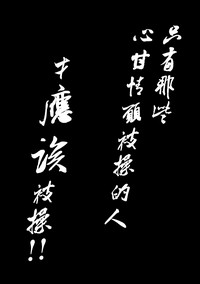 只有那些
心甘情願被操的人
才應該
被操!!